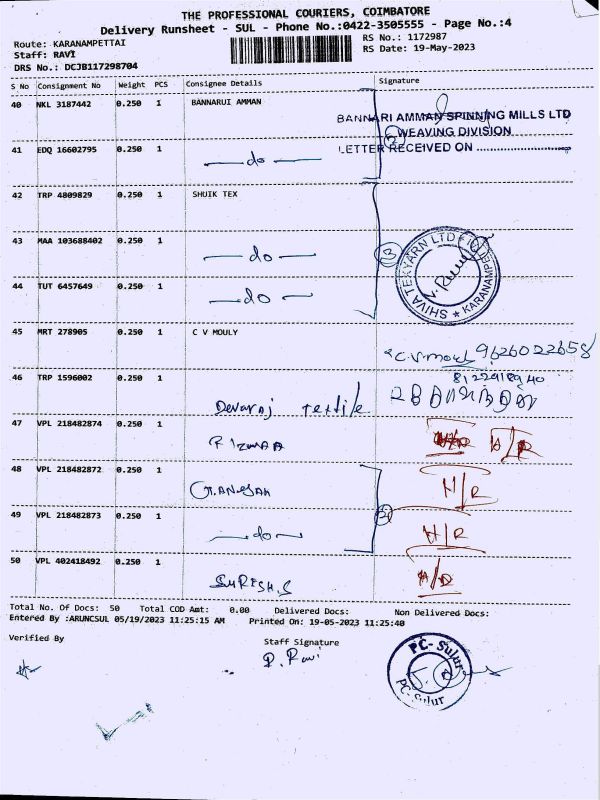 THE PROFESSIONAL COURIERS, COIMBATORE
Delivery Runsheet - SUL - Phone No.:0422-3505555 - Page No.:4
Route: KARANAMPETTAI
Staff: RAVI
DRS No.: DCJB117298704
RS No.: 1172987
RS Date: 19-May-2023
S No Consignment No Weight PCS Consignee Details Signature
40 NKL 3187442 0.250 1 BANNARUI AMMAN
BANNARI AMMAN SPINNING MILLS LTD
WEAVING DIVISION
LETTER RECEIVED ON
41 EDQ 16602795 0.250 1 —do—
42 TRP 4809829 0.250 1 SHUIK TEX
43 MAA 103688402 0.250 1 —do—
SHIVA TEXYARN LTD
KARANAMPET
44 TUT 6457649 0.250 1 —do—
45 MRT 278905 0.250 1 C V MOULY
C.V.Mouly 9626022658
46 TRP 1596002 0.250 1 Devaraj textile
47 VPL 218482874 0.250 1 RIZWAA
48 VPL 218482872 0.250 1 GANESAN N/R
49 VPL 218482873 0.250 1 —do— N/R
50 VPL 402418492 0.250 1 SURESH.S
Total No. Of Docs: 50 Total COD Amt: 0.00 Delivered Docs: Non Delivered Docs:
Entered By :ARUNCSUL 05/19/2023 11:25:15 AM Printed On: 19-05-2023 11:25:40
Verified By
Staff Signature
R. Ravi
PC-Sulur
PC-Sulur